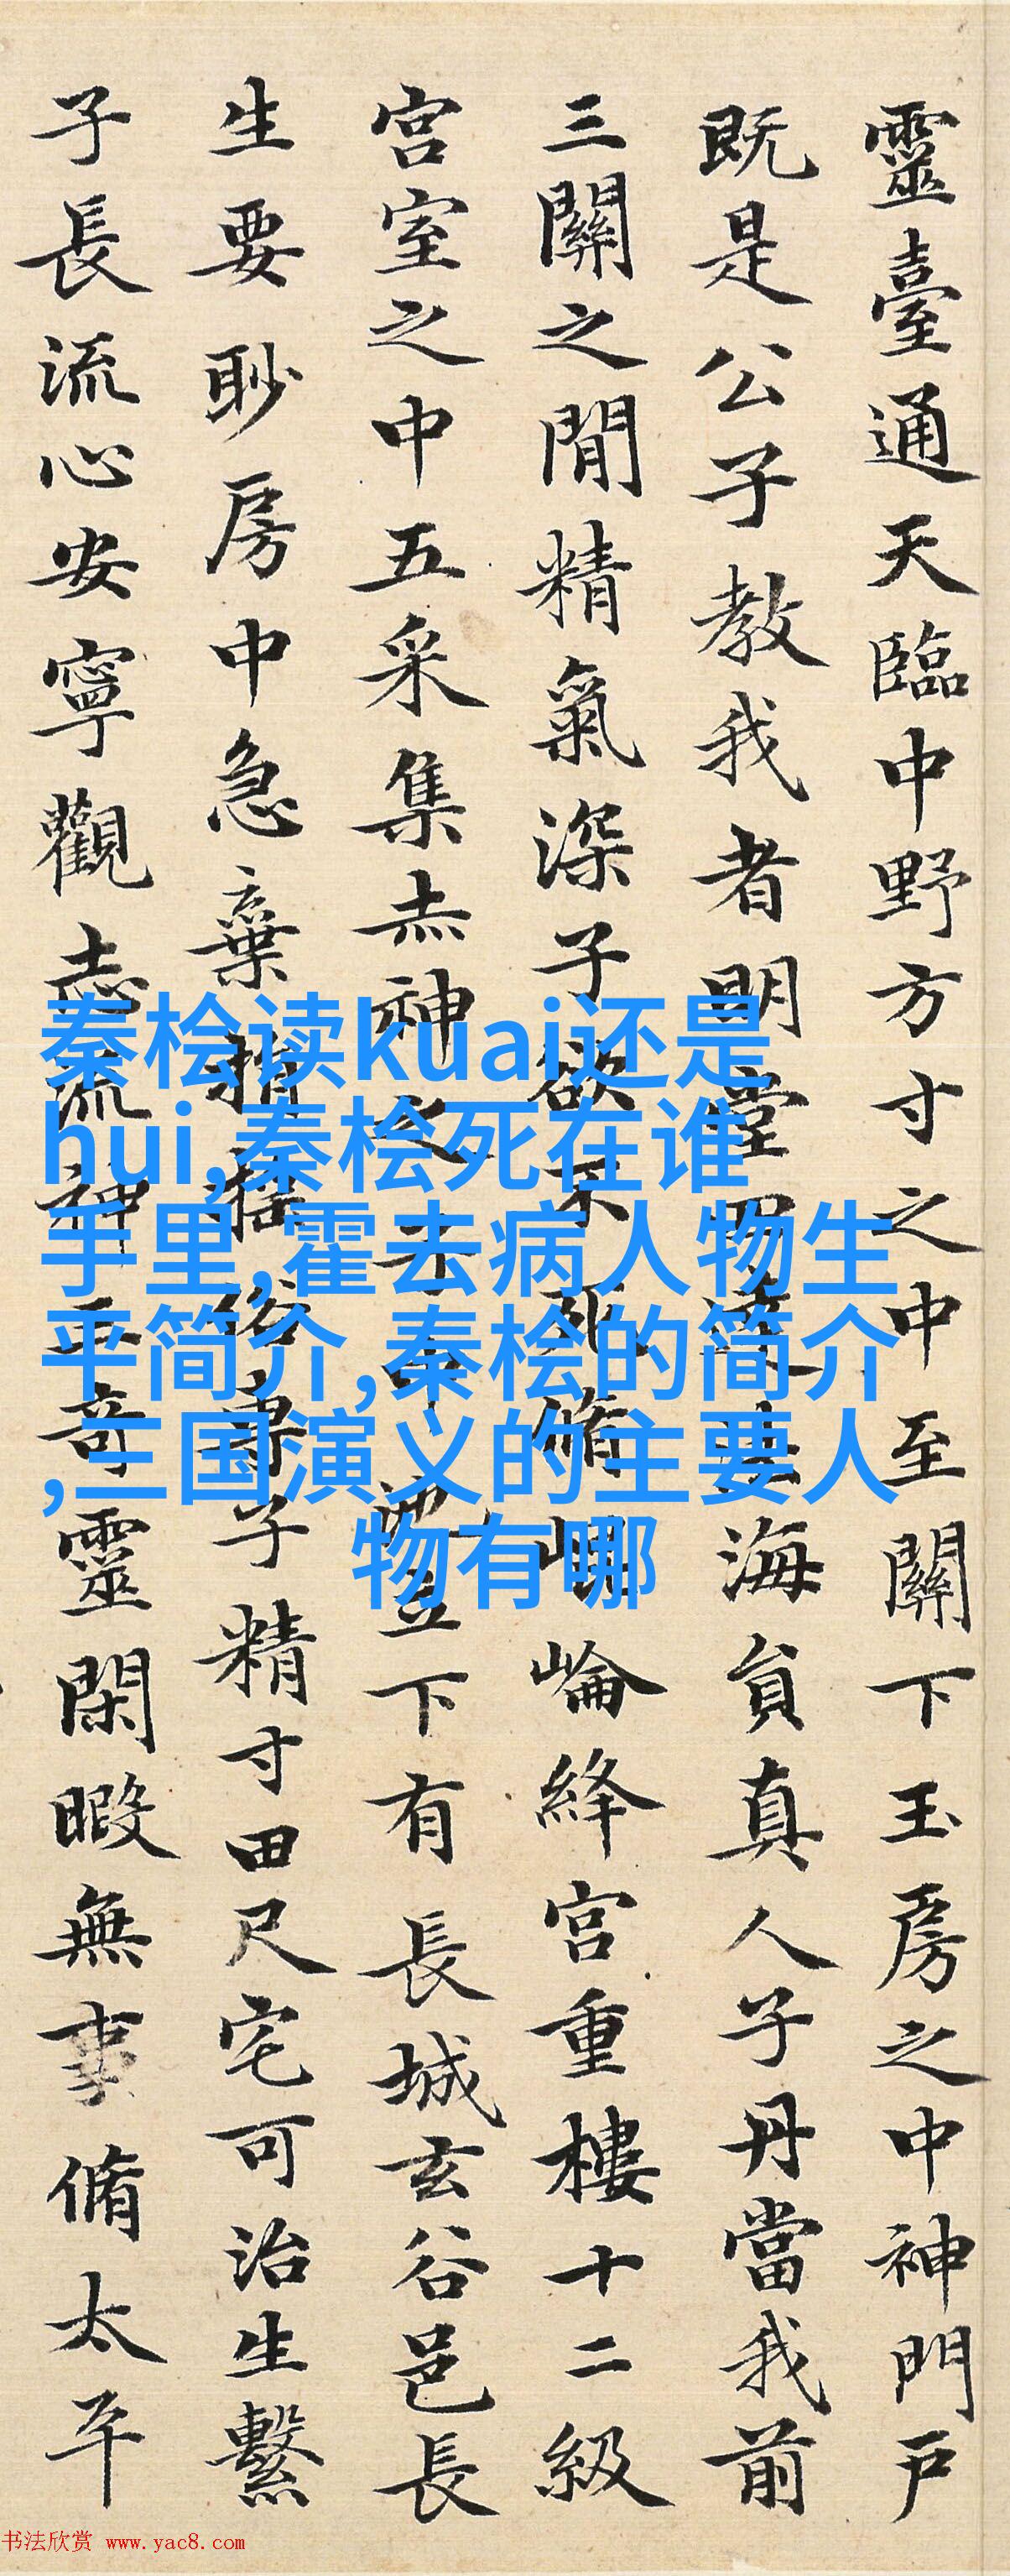 靈臺通天臨中野方寸之中至關下玉房之中神門戶
既是公子教我者明堂四達法海員真人子丹當我前
三關之閒精氣深子欲不死脩崐崘絳宫重樓十二級
宫室之中五采集赤神之子中池立下有長城玄谷邑長
生要眇房中急棄捐俗專子精寸田尺宅可治生繫
子長流心安寧觀志流神三奇靈閑暇無事脩太平
秦桧读kuai还是
hui,秦桧死在谁
手里,霍去病人物生
平简介,秦桧的简介
,三国演义的主要人
物有哪
书法欣赏 www.yac8.com